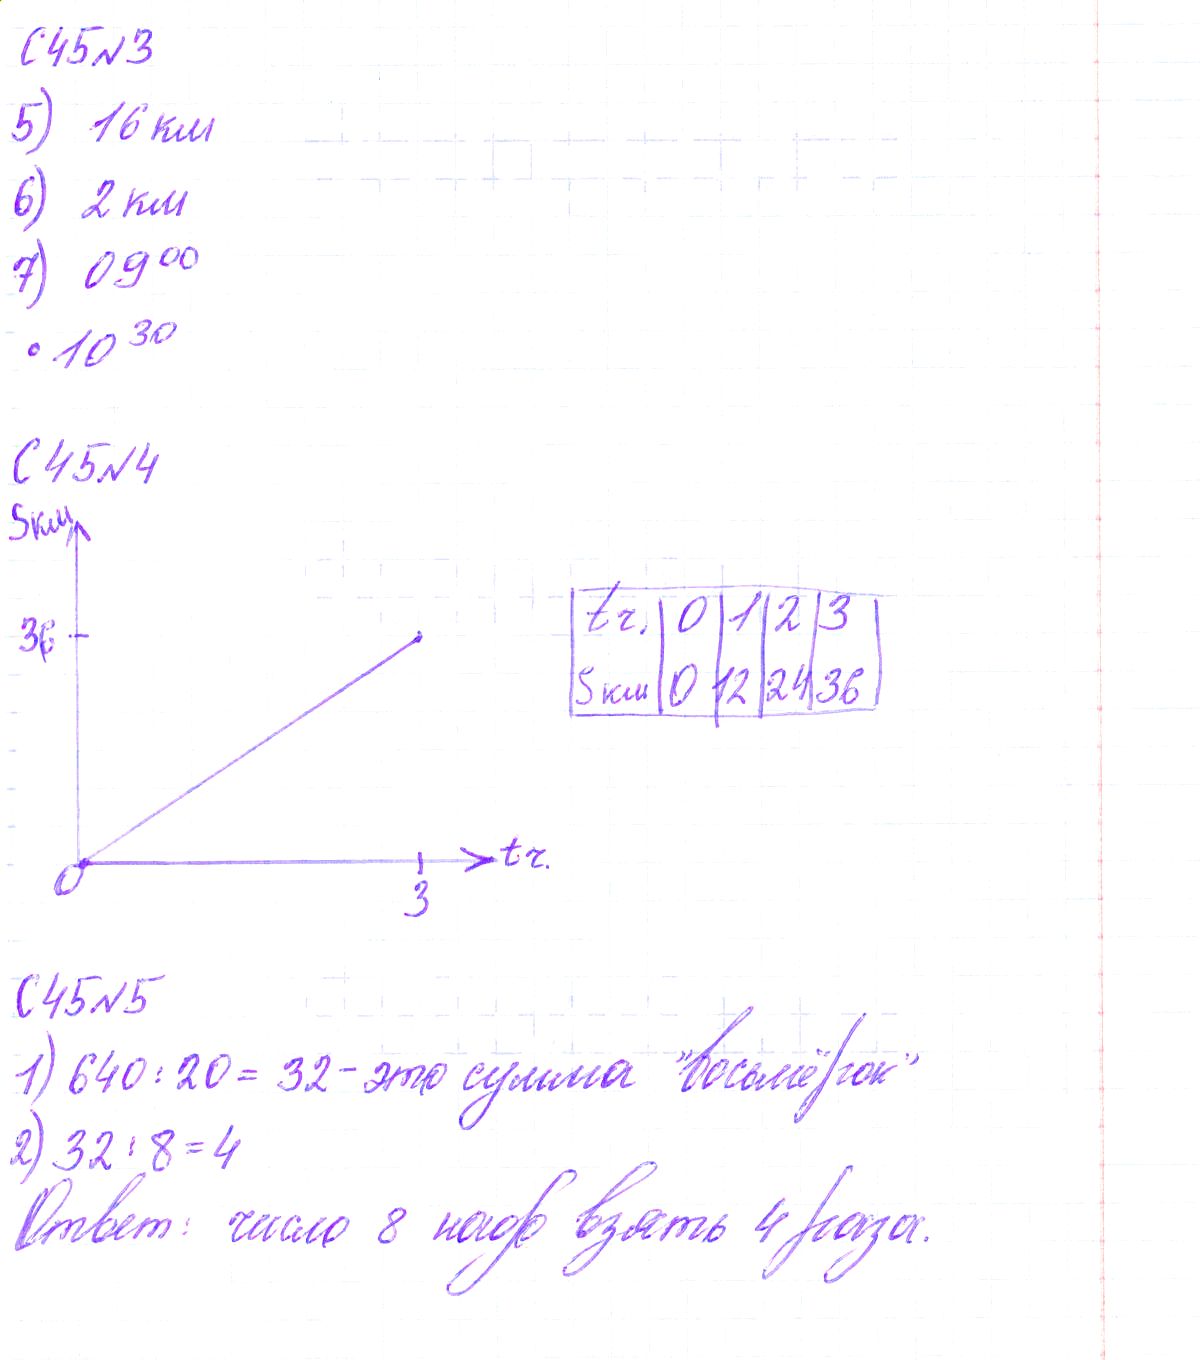 С45№3
5) 16 км
6) 2 км
7) 09⁰⁰
• 10³⁰
С45№4
S км
36
0
3
t ч.
t ч. 0 1 2 3
S км 0 12 24 36
С45№5
1) 640 : 20 = 32 - это сумма "восьмёрок"
2) 32 : 8 = 4
Ответ: число 8 надо взять 4 раза.